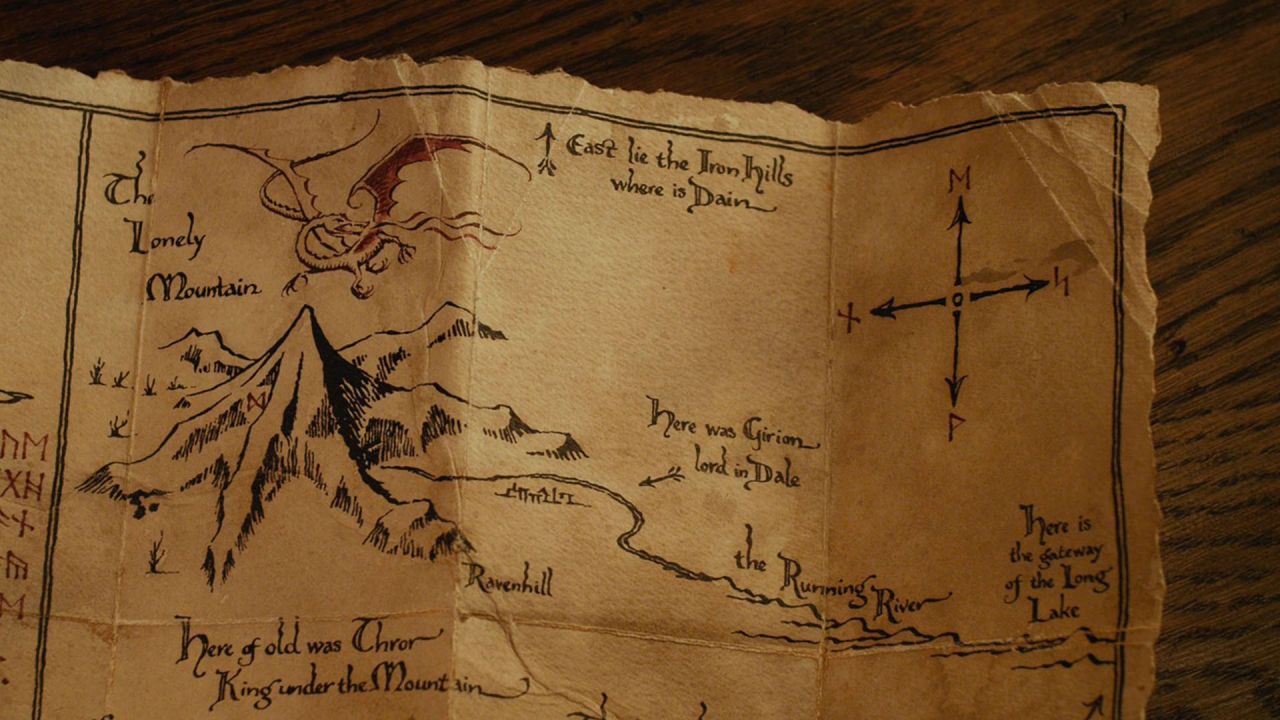 The
Lonely
Mountain
East lie the Iron Hills
where is Dain
ᛖ
ᚾ
ᛋ
ᚹ
Here was Girion
lord in Dale
the Running
River
Here is
the gateway
of the Long
Lake
Ravenhill
Here of old was Thror
King under the Mountain
ᛞ